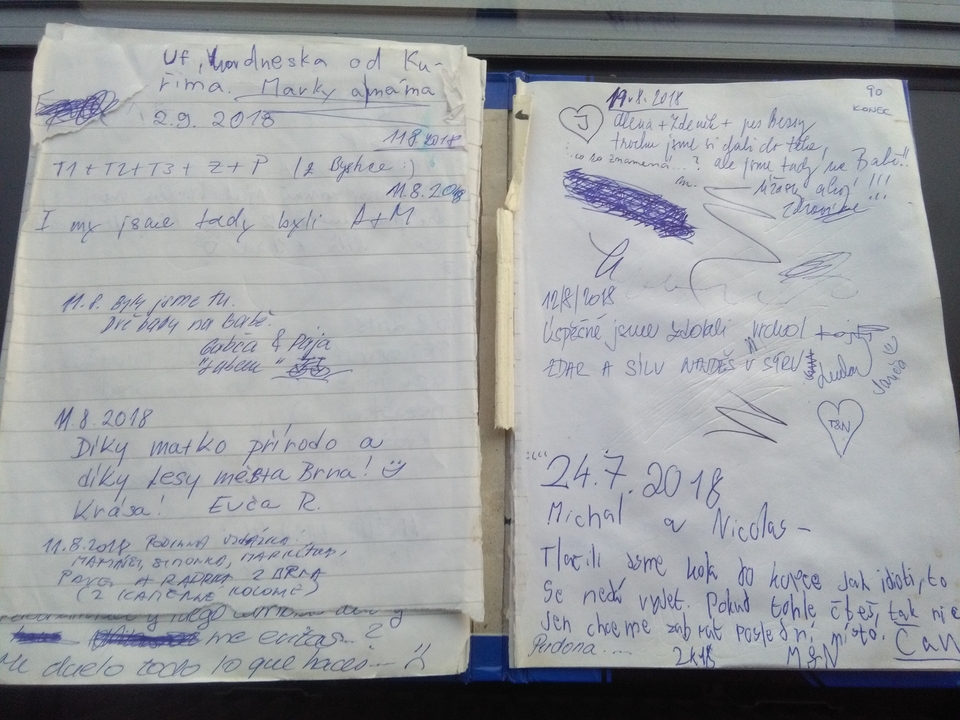 Uf, dneska od Ku-
řima. Marky a máma
2.9. 2018
11.8.2018
T1+T2+T3+Z+P (z Bystrce :)
11.8.2018
I my jsme tady byli A+M
11.8. Byly jsme tu.
Dvě baby na Babě.
Gabča & Pája
11.8.2018
Díky matko přírodo a
díky Lesy města Brna!
Krása! Euča R.
11.8.2018 Rodinná
MAMINEJ, SIMONKA, MARKÉTKA,
PAVEL A RADKA Z BRNA
(Z KAMENNÉ KOLONIE)
me evitas...?
Me duelo todo lo que haces...
90
KONEC
8.2018
J
Alena + Zdeněk + pes Bessy
trochu jsme si dali do těla,
co to znamená...? ale jsme tady na Babě!!
ahoj!!!
12/8/2018
Úspěšně jsme zdolali vrchol
ZDAR A SÍLU NAJDEŠ V SÝRU
Luďa
T&N
24.7.2018
Michal a Nicolas -
Tlačili jsme kola do kopce jak idioti, to
se nedá vyjet. Pokud tohle čteš, tak nic
jen chceme zabrat poslední místo. Čau
Perdona.... 2k18 M&N